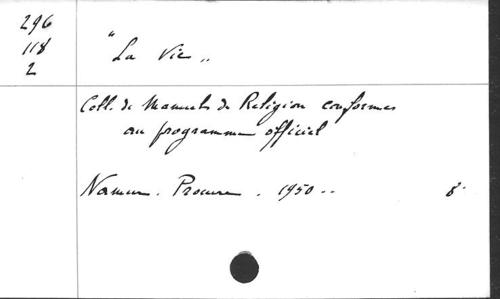 296
118
2
"La Vie"
Coll. de Manuels de Religion conformes
au programme officiel
Namur. Procure. 1950 -- 8°